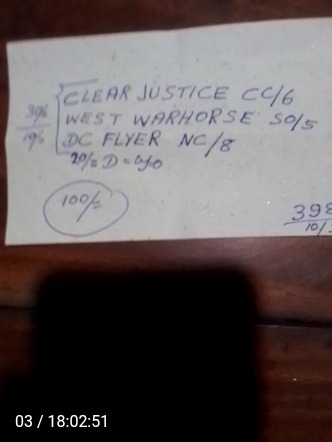 CLEAR JUSTICE CC/6
WEST WARHORSE SO/5
DC FLYER NC/8
100/=
398
10/
03 / 18:02:51